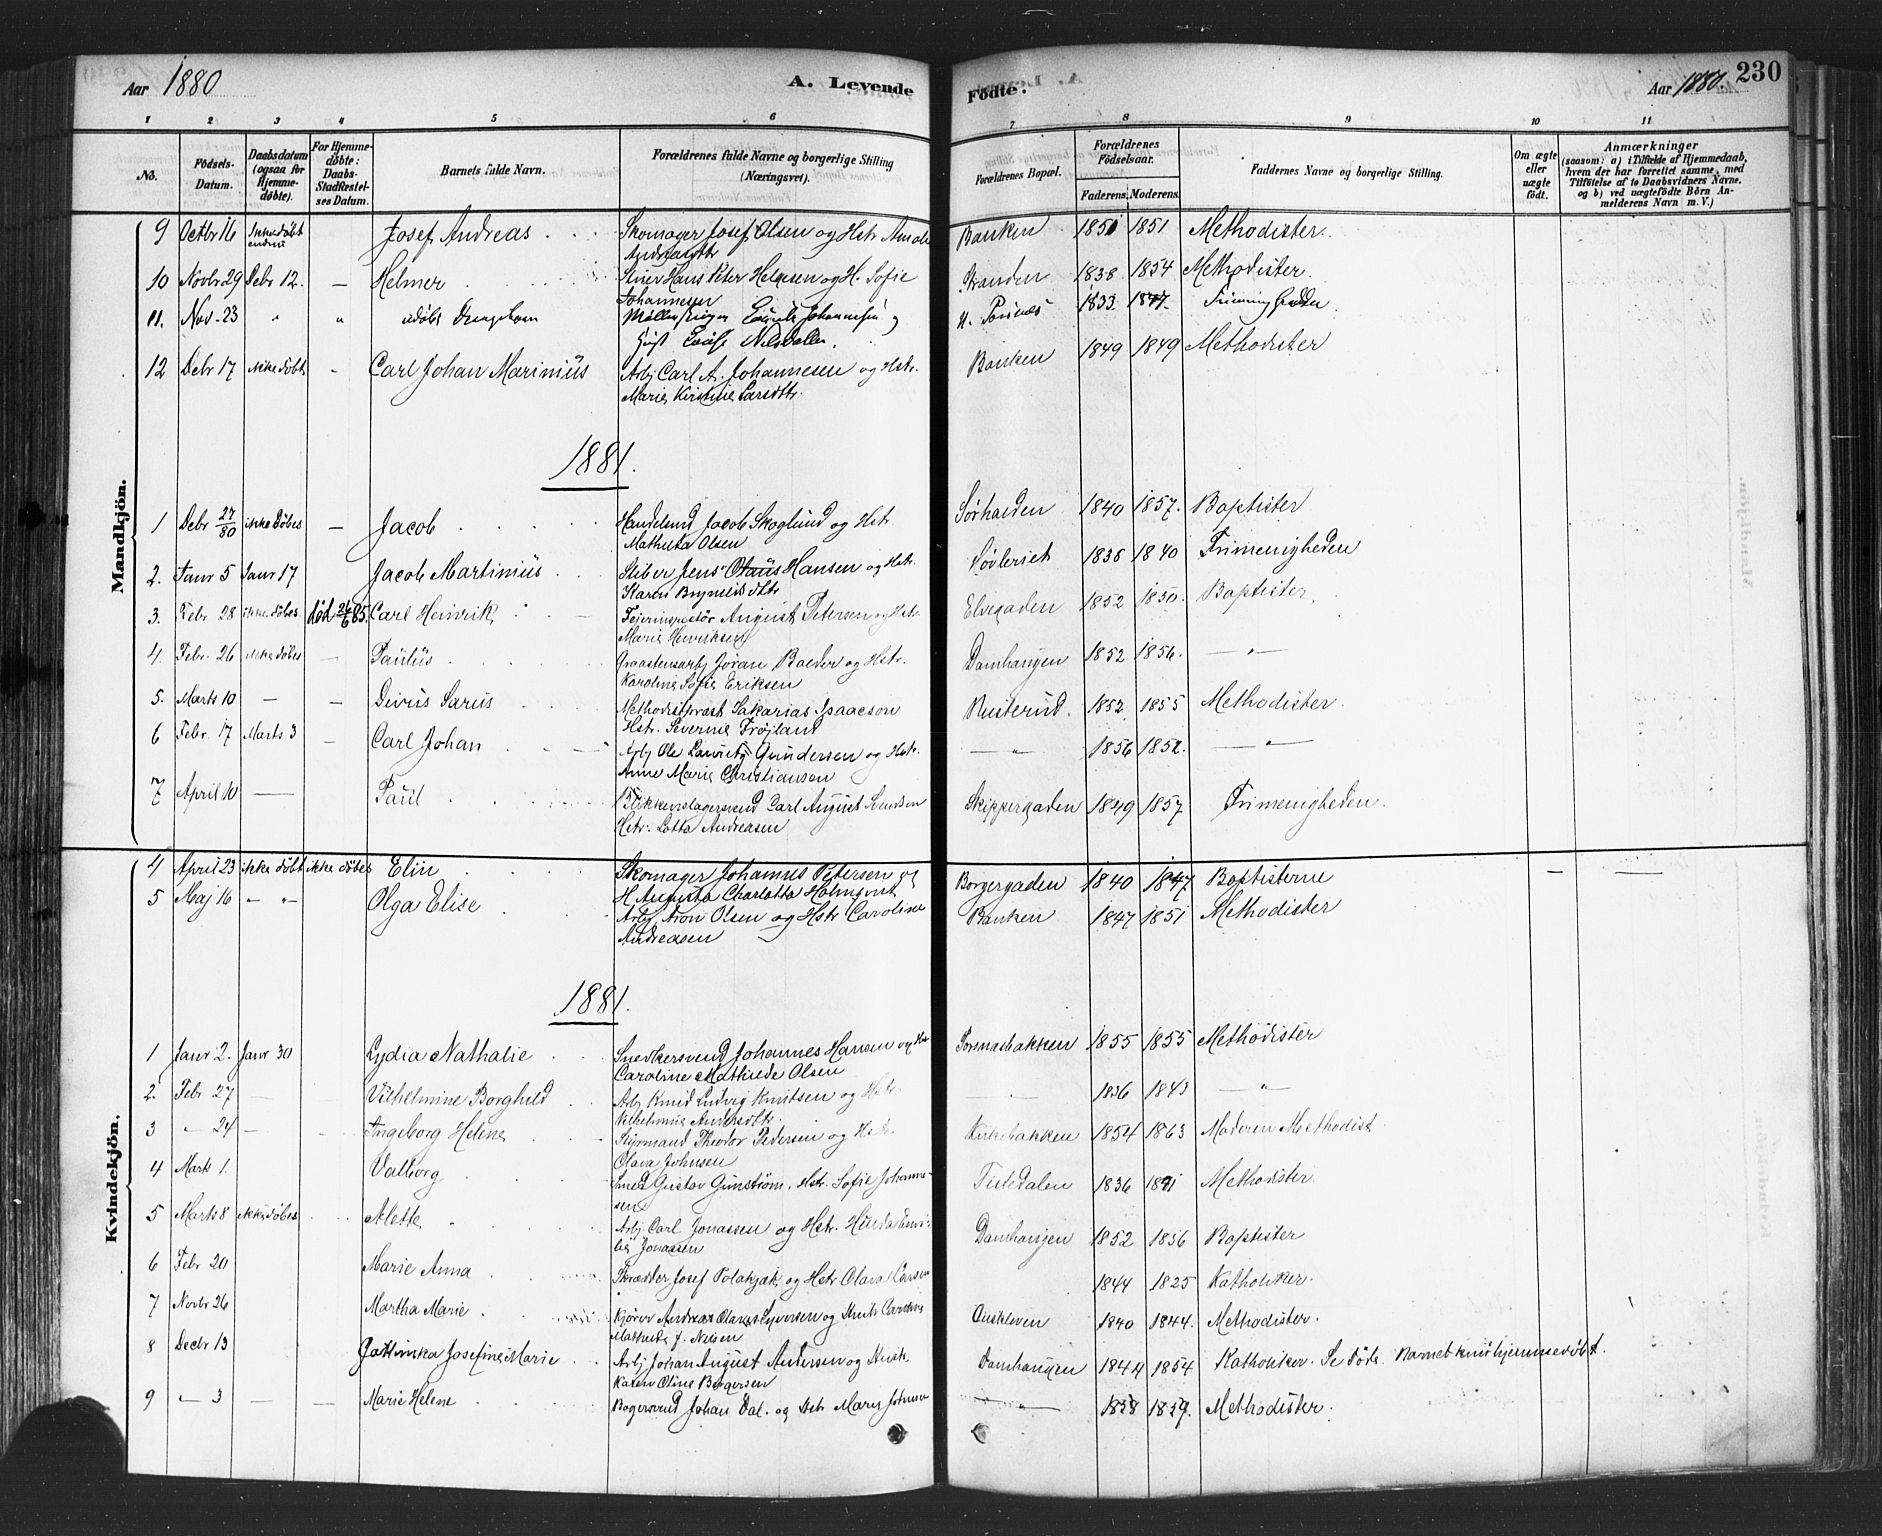 Aar 1880 A. Levende Fødte. Aar 1880. 230
1 2 3 4 5 6 7 8 9 10 11
No. Fødsels-Datum. Daabsdatum (ogsaa for Hjemme-døbte). For Hjemme-døbte: Daabs-Stadfæstel-ses Datum. Barnets fulde Navn. Forældrenes fulde Navne og borgerlige Stilling (Næringsvei). Forældrenes Bopæl. Forældrenes Fødselsaar. Faderens. Moderens. Faddernes Navne og borgerlige Stilling. Om ægte eller uægte født. Anmærkninger (saasom: a) i Tilfælde af Hjemmedaab, hvem der har forrettet samme, med Tilføielse af to Daabsvidners Navne, og b) ved uægtefødte Børn An-melderens Navn m. V.)
Mandkjön.
9 Octbr 16 Ikke døbt endnu Josef Andreas Skomager Josef Olsen og Hstr Banken 1851 1851 Methodister.
10 Novbr 29 Debr 12. — Helmer Hans Peter Helgesen og H. Sofie Johannesen Stranden 1838 1854 Methodister.
11. Nov. 23 " " udøbt Drengebarn Johannesen og 1833 1847
12 Debr 17 ikke døbt - Carl Johan Marinius Arbj Carl A. Johannesen og Hstr. Marie Kirstine Larsdtr. Banken 1849 1849 Methodister
1881.
1 Debr 27/80 ikke døbes — Jacob Jacob Skoglund og Hstr. Mathilda Olsen Sørhalden 1840 1857. Baptister
2. Janr 5 Janr 17 Jacob Martinius Jens Olaus Hansen og Hstr. Karen 1835 1840 Frimenigheden
3. Febr 28 ikke døbes død 24/6 85. Carl Heinrik August Petersen og Hstr. Marie Henriksen Elvegaden 1852 1850. Baptister
4. Febr. 26 ikke døbes — Paulus Gøran og Hstr. Karoline Sofie Eriksen Damhaugen 1852 1856. — " —
5. Marts 10 — — Deirus Sarus Methodistpræst Sakarias Isaacson Hstr. Severine Frøjland Rusterud. 1852 1855 Methodister
6 Febr. 17 Marts 3 — Carl Johan Arbj Ole Lauritz Gundersen og Hstr. Anne Marie Christiansen — " — 1856 1852. — " —
7 April 10 — Paul Blikkenslagersvend Carl August Svendsen Hstr. Lotta Andreasen Skippergaden 1849 1857 Frimenigheden.
Kvindekjön.
4 April 23 ikke døbt ikke døbes Elin Skomager Johannes Petersen og H Augusta Charlotta Holmqvist Borgergaden 1840 1847 Baptisterne — —
5 Maj 16 — " — Olga Elise Arbj Aron Olsen og Hstr Caroline Andreasen Banken 1847 1851 Methodister
1881.
1 Janr 2. Janr 30 Lydia Nathalie Snedkersvend Johannes Hansen og Hstr Caroline Mathilde Olsen 1855 1855 Methodister
2. Febr 27 — — Vilhelmine Borghild Arbj Knud Ludvig Knutsen og Hstr. Vilhelmine Andersdtr. — " — 1836 1843 — " —
3 — " 24 — — Ingeborg Helene Styrmand Theodor Pedersen og Hstr. Olava Johnsen Kirkebakken 1854 1863 Moderen Methodist
4 Marts 1. Valborg Smed Gustav Gunstrøm. Hstr. Sofie Johannesen Tistedalen 1836 1841 Methodister
5 Marts 8 ikke døbes Alette Arbj Carl Jonassen og Hstr. Jonassen Damhaugen 1852 1856 Baptister
6 Febr 20 Marie Anna Skrædder Josef Polakjak og Hstr Olava Larsen 1844 1825 Katholiker.
7 Novbr 26 Martha Marie Kjører Andreas Olaves Syversen og Hustr Caroline Mathilde J. Nilsen 1840 1844. Methodister.
8 Decbr 13 Josefine Marie Arbj Johan August Andersen og Hustr. Karen Oline Borgersen Damhaugen 1844 1854 Katholiker. Se Døde. Barnet kun hjemmedøbt.
9 — " 3 — — Marie Helene Johan Dal. og Hstr Mary Johnsen — " — 1858 1859. Methodister.